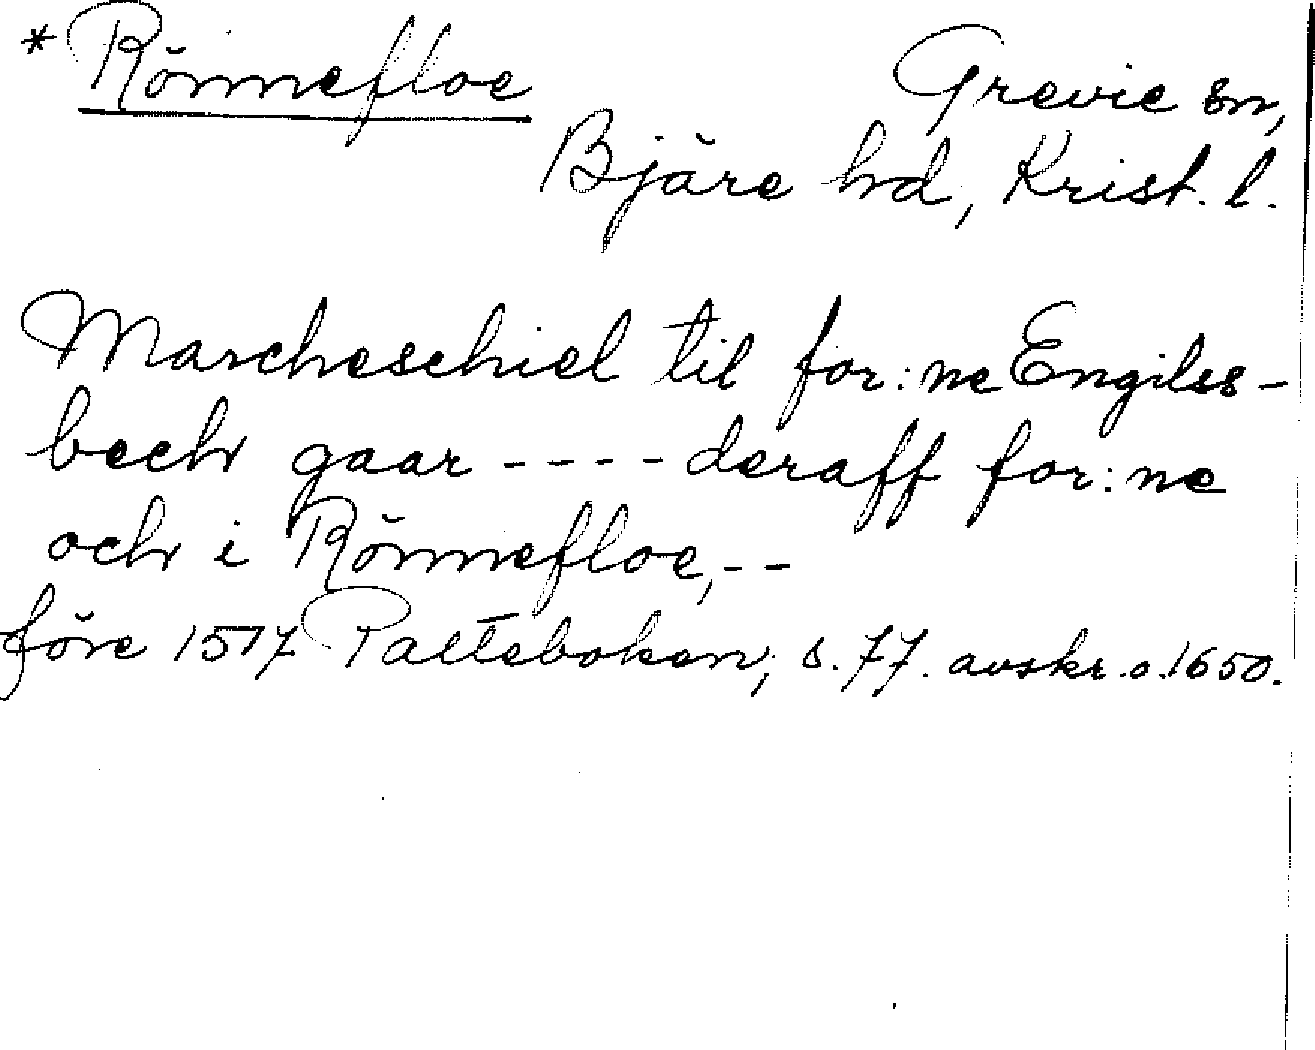 * Rönnefloe Grevie sn,
Bjäre hd, Krist. l.
Marcheschiel til for:ne Engilss-
bech gaar ---- deraff for:ne
och i Rönnefloe, --
före 1517 Palteboken, s. 77. avskr. o. 1650.